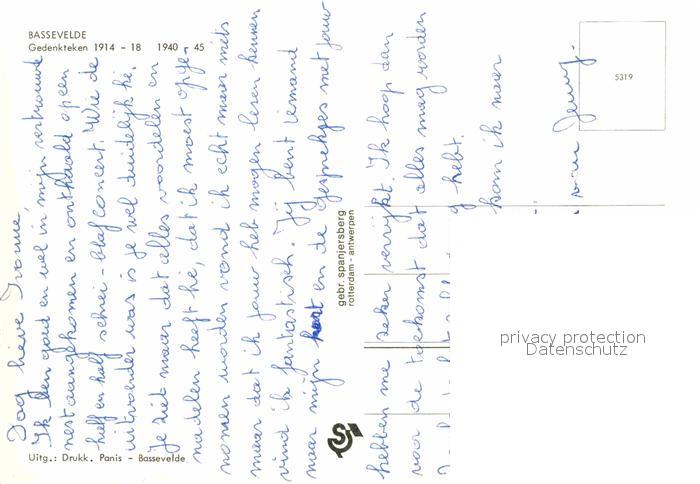 BASSEVELDE
Gedenkteken 1914 - 18   1940 - 45
5319
Dag lieve Ivonne,
Ik ben goed en wel in mijn vertrouwde
nest aangekomen en onthaald op een
half en half schrei-blafconcert. Wie de
uitvoerder was is je wel duidelijk hé.
Je ziet maar dat alles voordelen en
nadelen heeft hé, dat ik moest opge-
nomen worden vond ik echt maar niets
maar dat ik jouw heb mogen leren kennen
vind ik fantastisch. Jij bent iemand
naar mijn hart en de gesprekjes met jouw
hebben me zeker verrijkt. Ik hoop dan
voor de toekomst dat alles mag worden
g hebt.
kom ik naar
van Jenny.
gebr. spanjersberg
rotterdam - antwerpen
Uitg.: Drukk. Panis - Bassevelde
privacy protection
Datenschutz